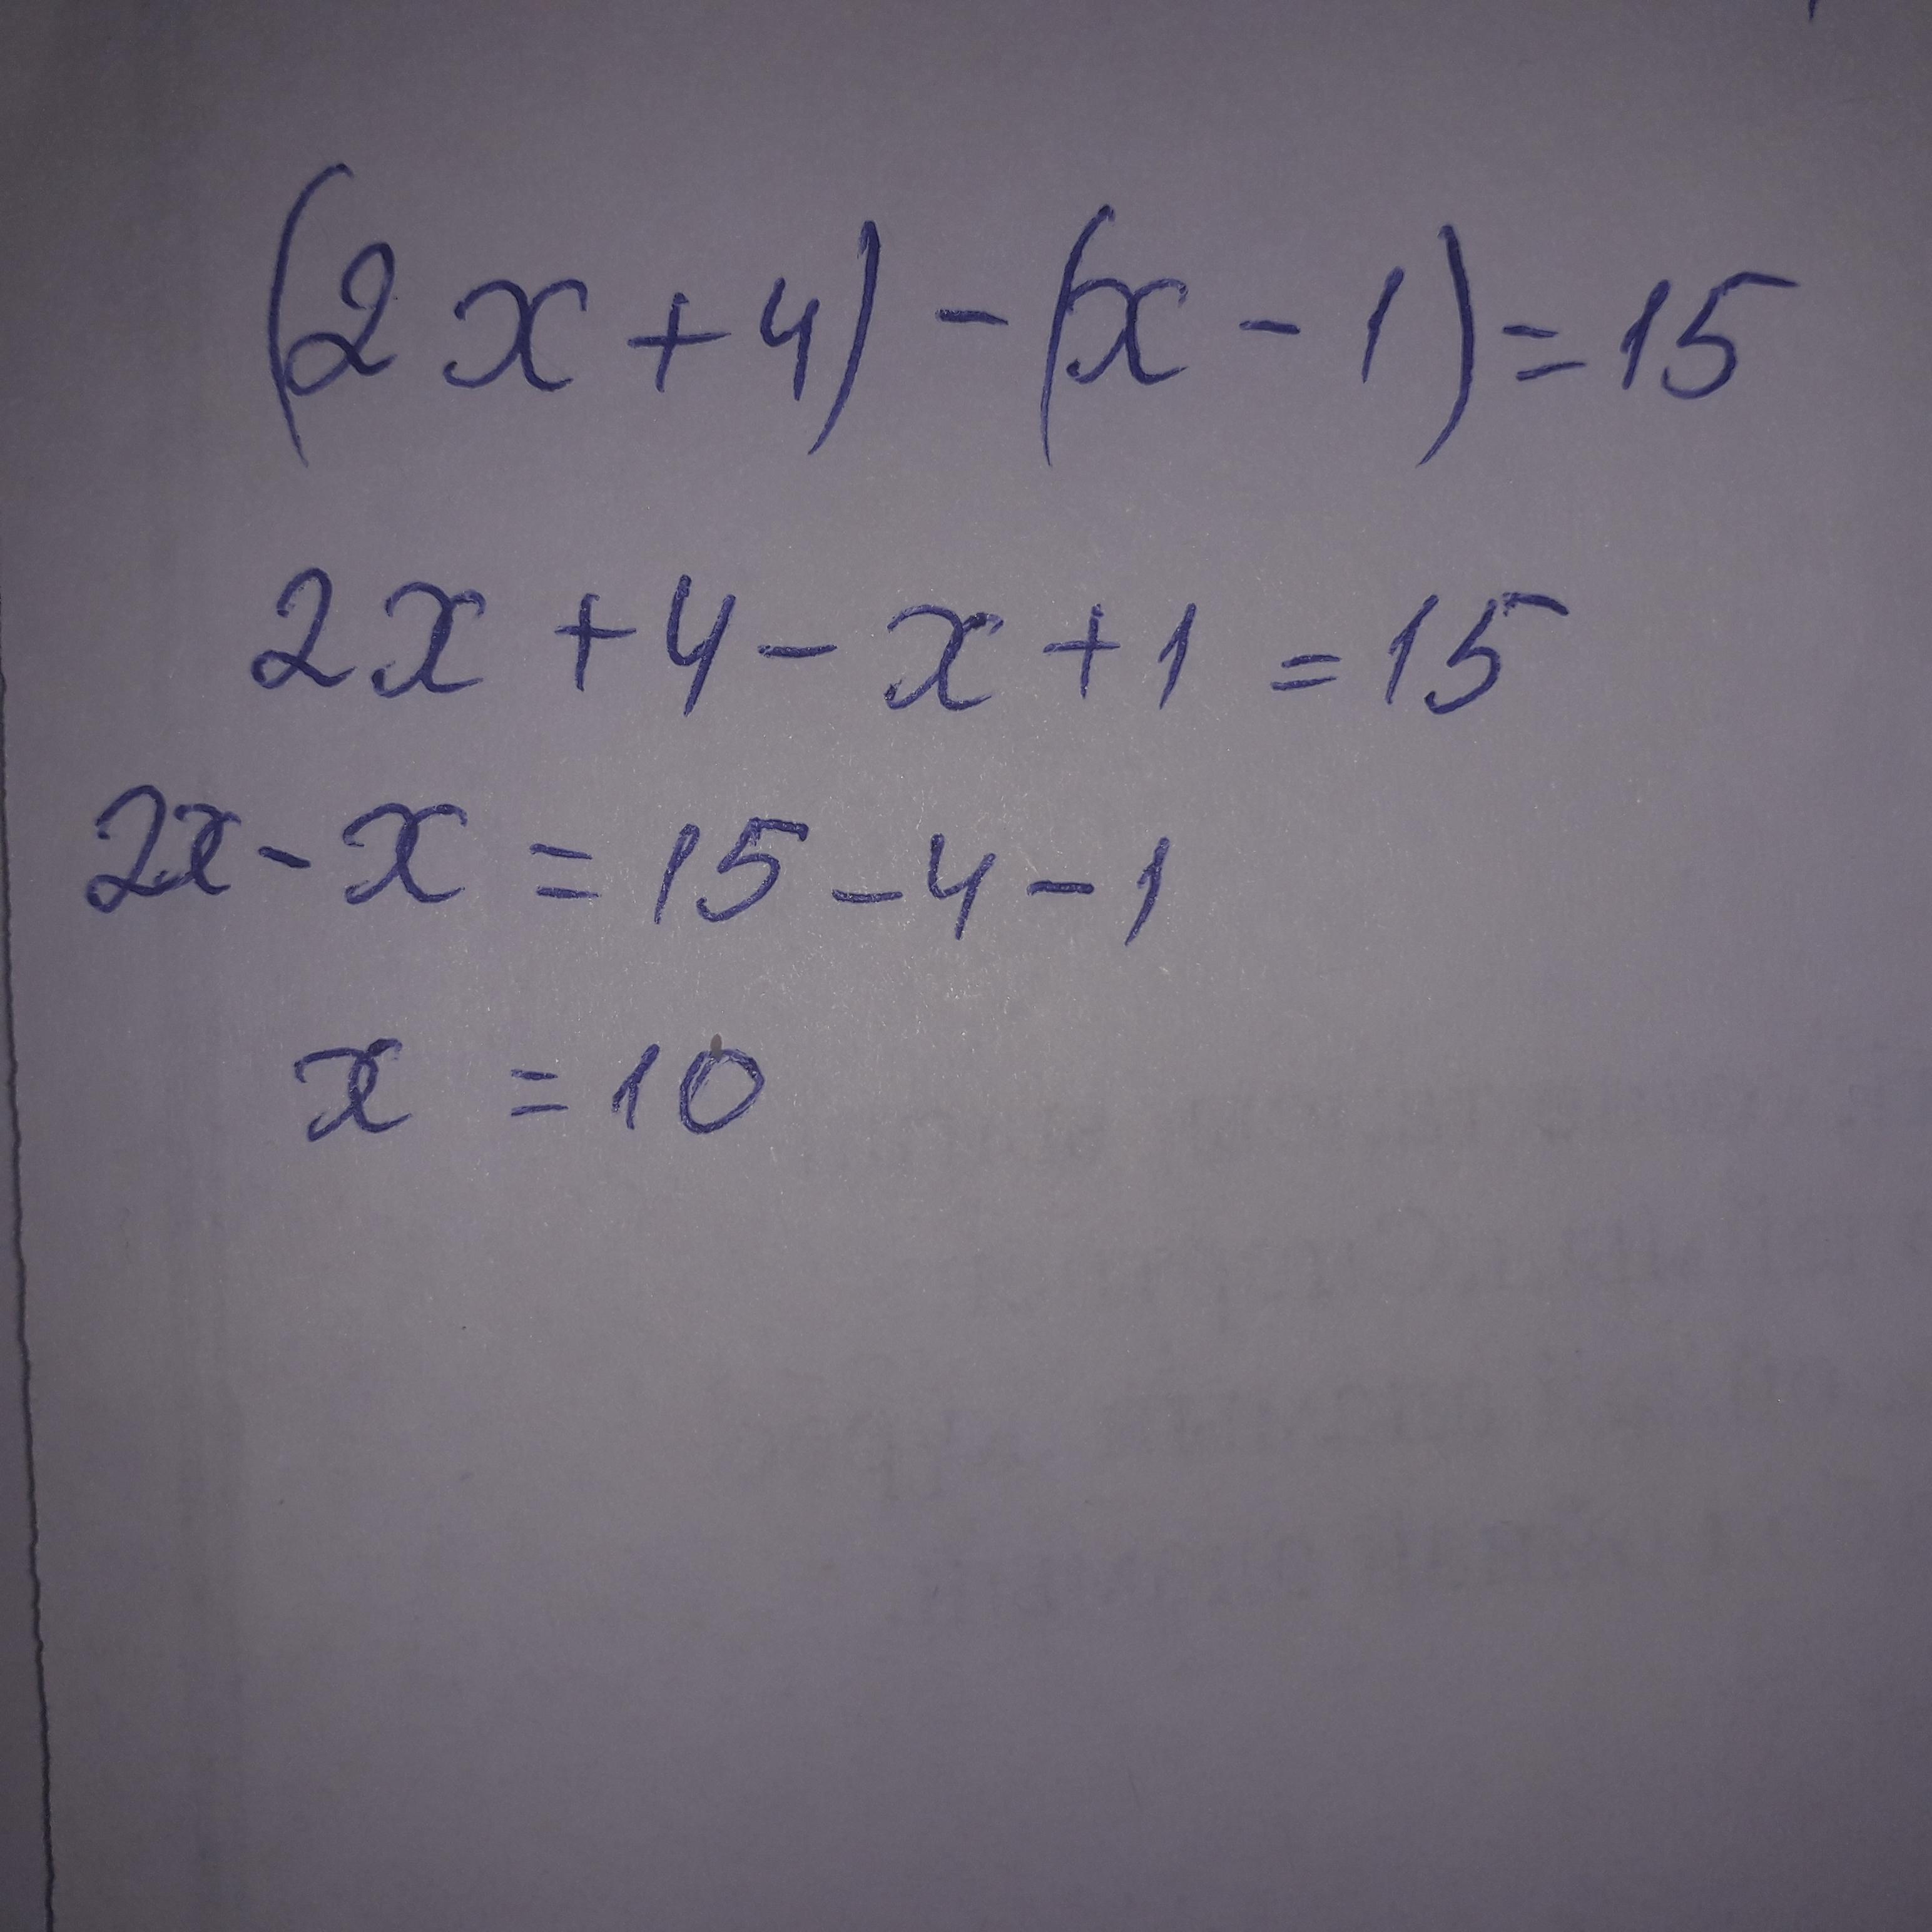 (2x+4)-(x-1)=15
2x+4-x+1=15
2x-x=15-4-1
x=10